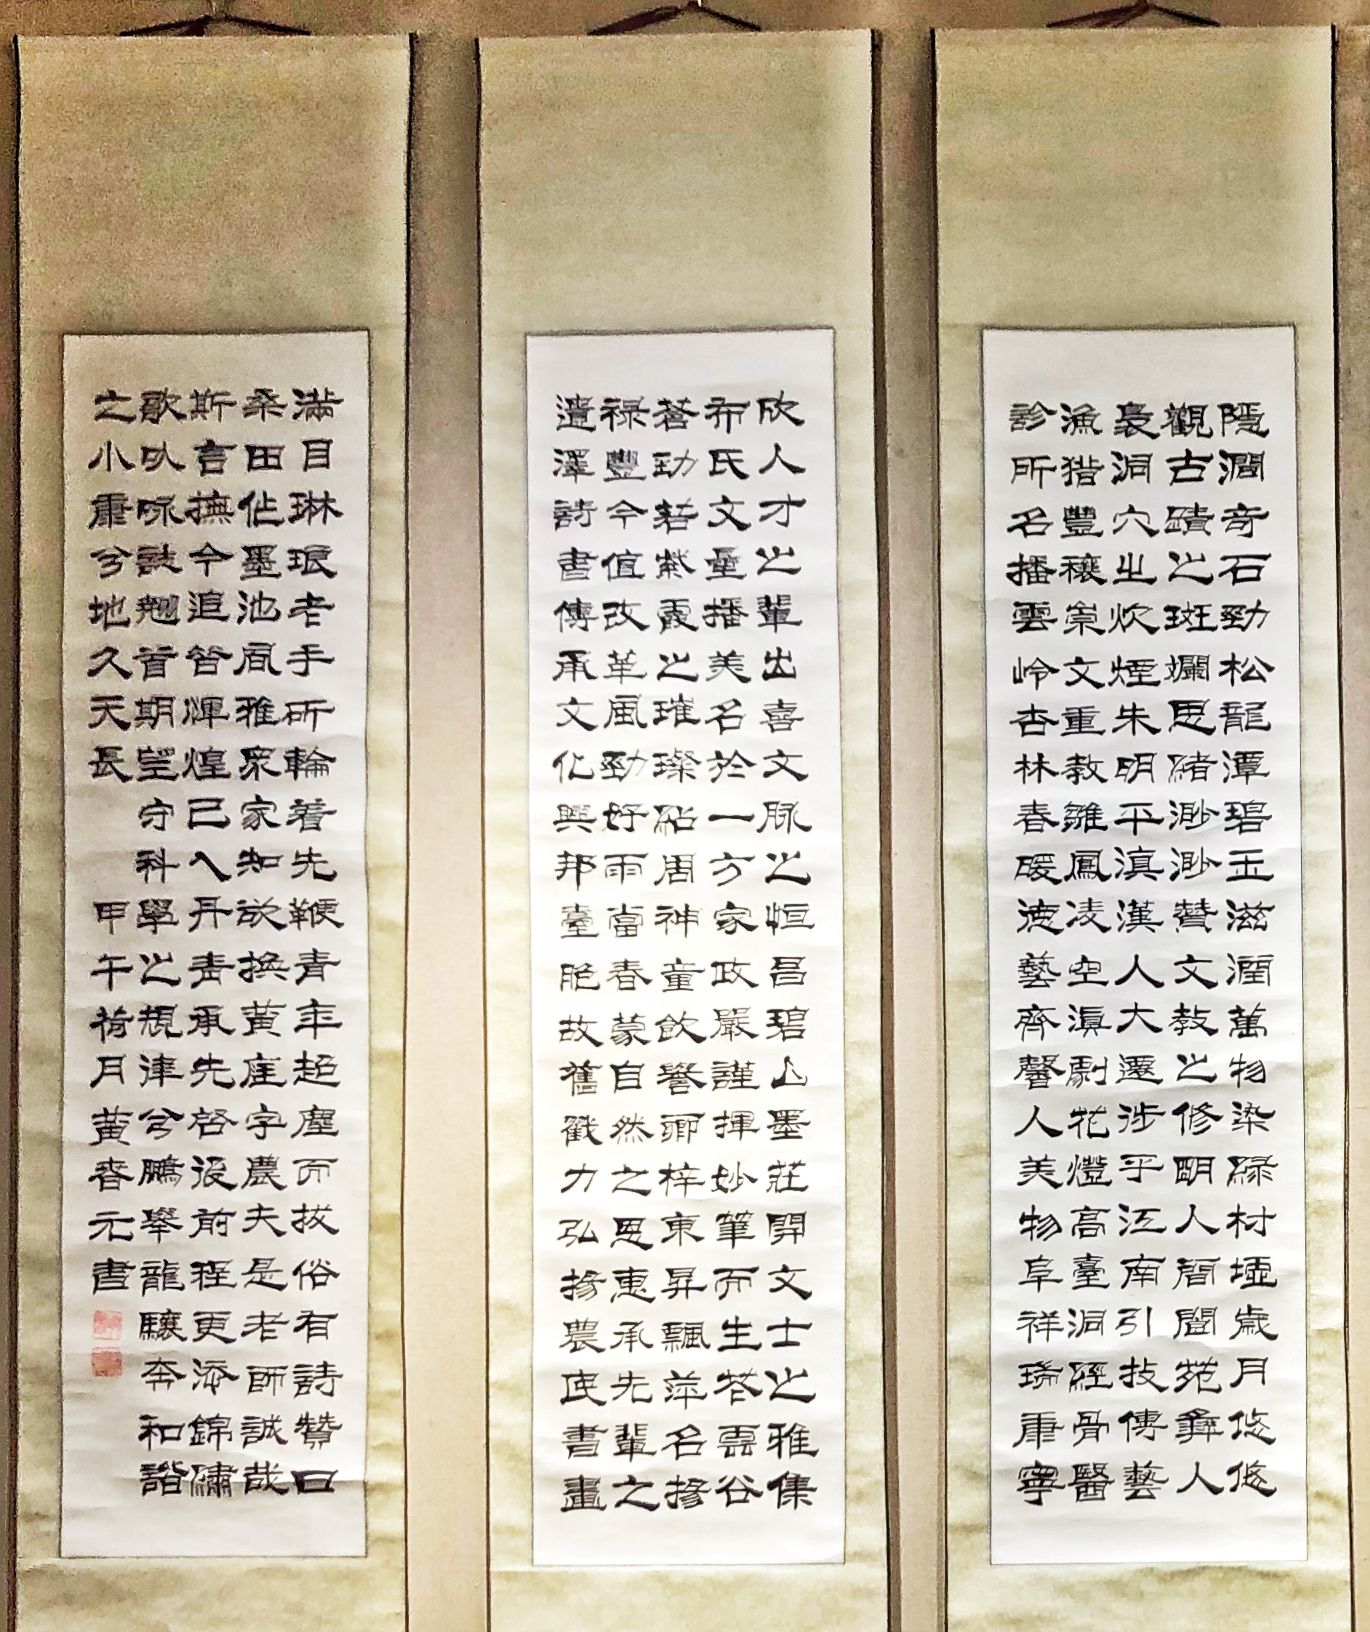 隱澗奇石勁松龍潭碧玉滋潤萬物染緑材墟歲月悠悠
觀古蹟之斑斕思緒渺渺贊文教之修明人間閬苑彝人
裊洞穴之炊煙朱明平滇漢人大遷涉乎江南引技傳藝
漁猎豐穰崇文重教雛鳳凌空滇劇花燈高臺洞經骨醫
診所名播雲岭杏林春暖德藝齊馨人美物阜祥瑞肅寧
欣人才之輩出喜文脉之恒昌碧山墨莊開文士之雅集
布氏文量播美名於一方家政嚴謹揮妙筆而生花雲谷
蒼勁若紫霞之璀璨點周神童飲譽卿梓東昇飄萍名揚
禄豐今值改革風勁好雨當春蒙自然之恩惠承先輩之
遺澤詩書傳承文化興邦臺肥故舊戮力弘揚農民書畫
滿目琳琅老手斫輪着先鞭青年超塵而拔俗有詩贊曰
桑田作墨池高雅衆家知欲換黃庭字農夫是老師誠哉
斯言撫今追昔輝煌已入丹青承先啓後前程更添錦繡
歌以詠誌翹首期望守科學之規律兮鵬舉龍驤奔和諧
之小康兮地久天長
甲午荷月黄春元書